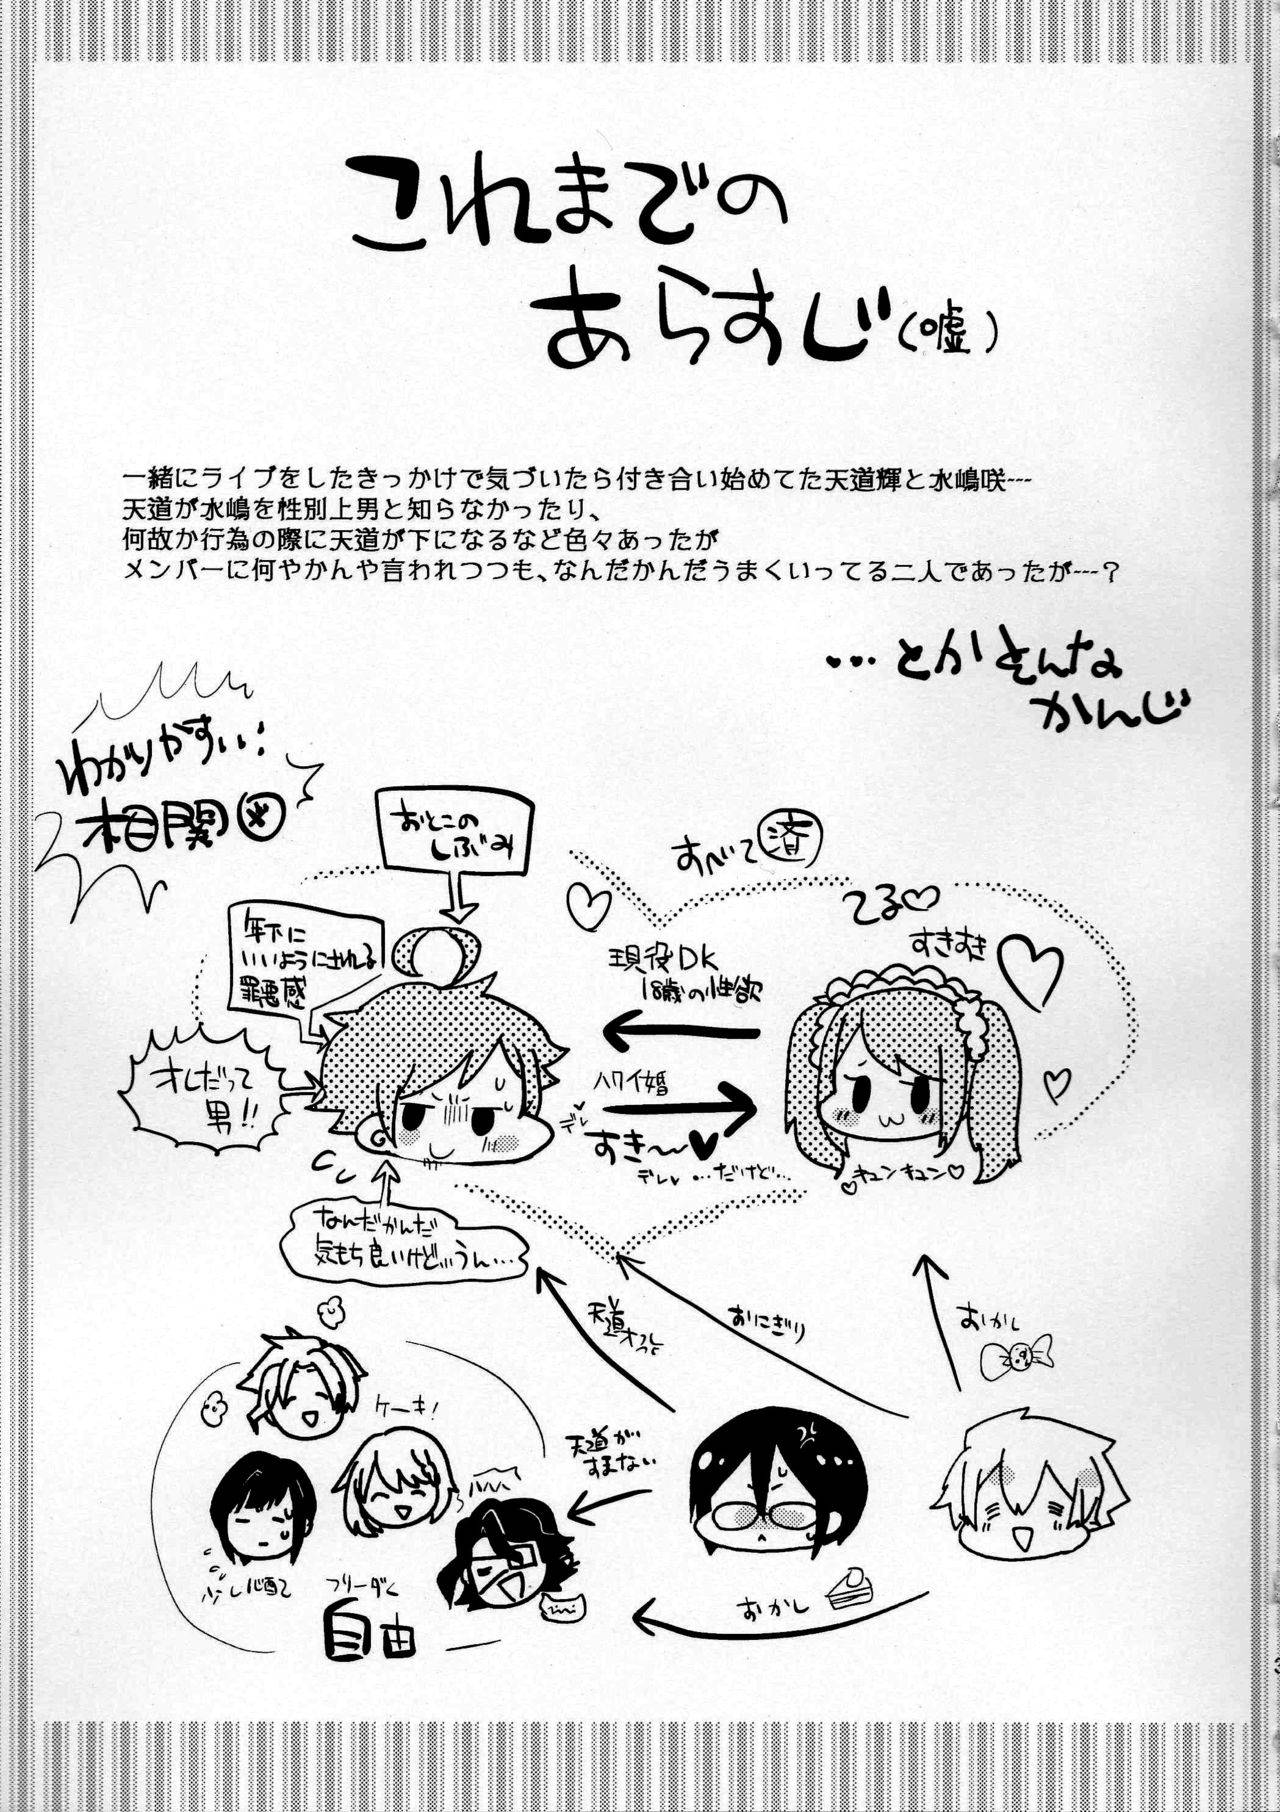 これまでの
あらすじ(嘘)
一緒にライブをしたきっかけで気づいたら付き合い始めてた天道輝と水嶋咲…
天道が水嶋を性別上男と知らなかったり、
何故か行為の際に天道が下になるなど色々あったが
メンバーに何やかんや言われつつも、なんだかんだうまくいってる二人であったが…?
…とかそんな
かんじ
わかりやすい!
相関図
おとこの
しぶみ
すべて済
てる♡
すきすき
年下に
いいようにされる
罪悪感
現役DK
18歳の性欲
オレだって
男!!
ハワイ婚
デレ
すき〜♥
デレ…だけど…
♡キュンキュン♡
なんだかんだ
気もち良いけど…うん…
天道
おにぎり
おかし
ケーキ!
天道が…
すまない
少し心配
フリーダム
自由
おかし
3